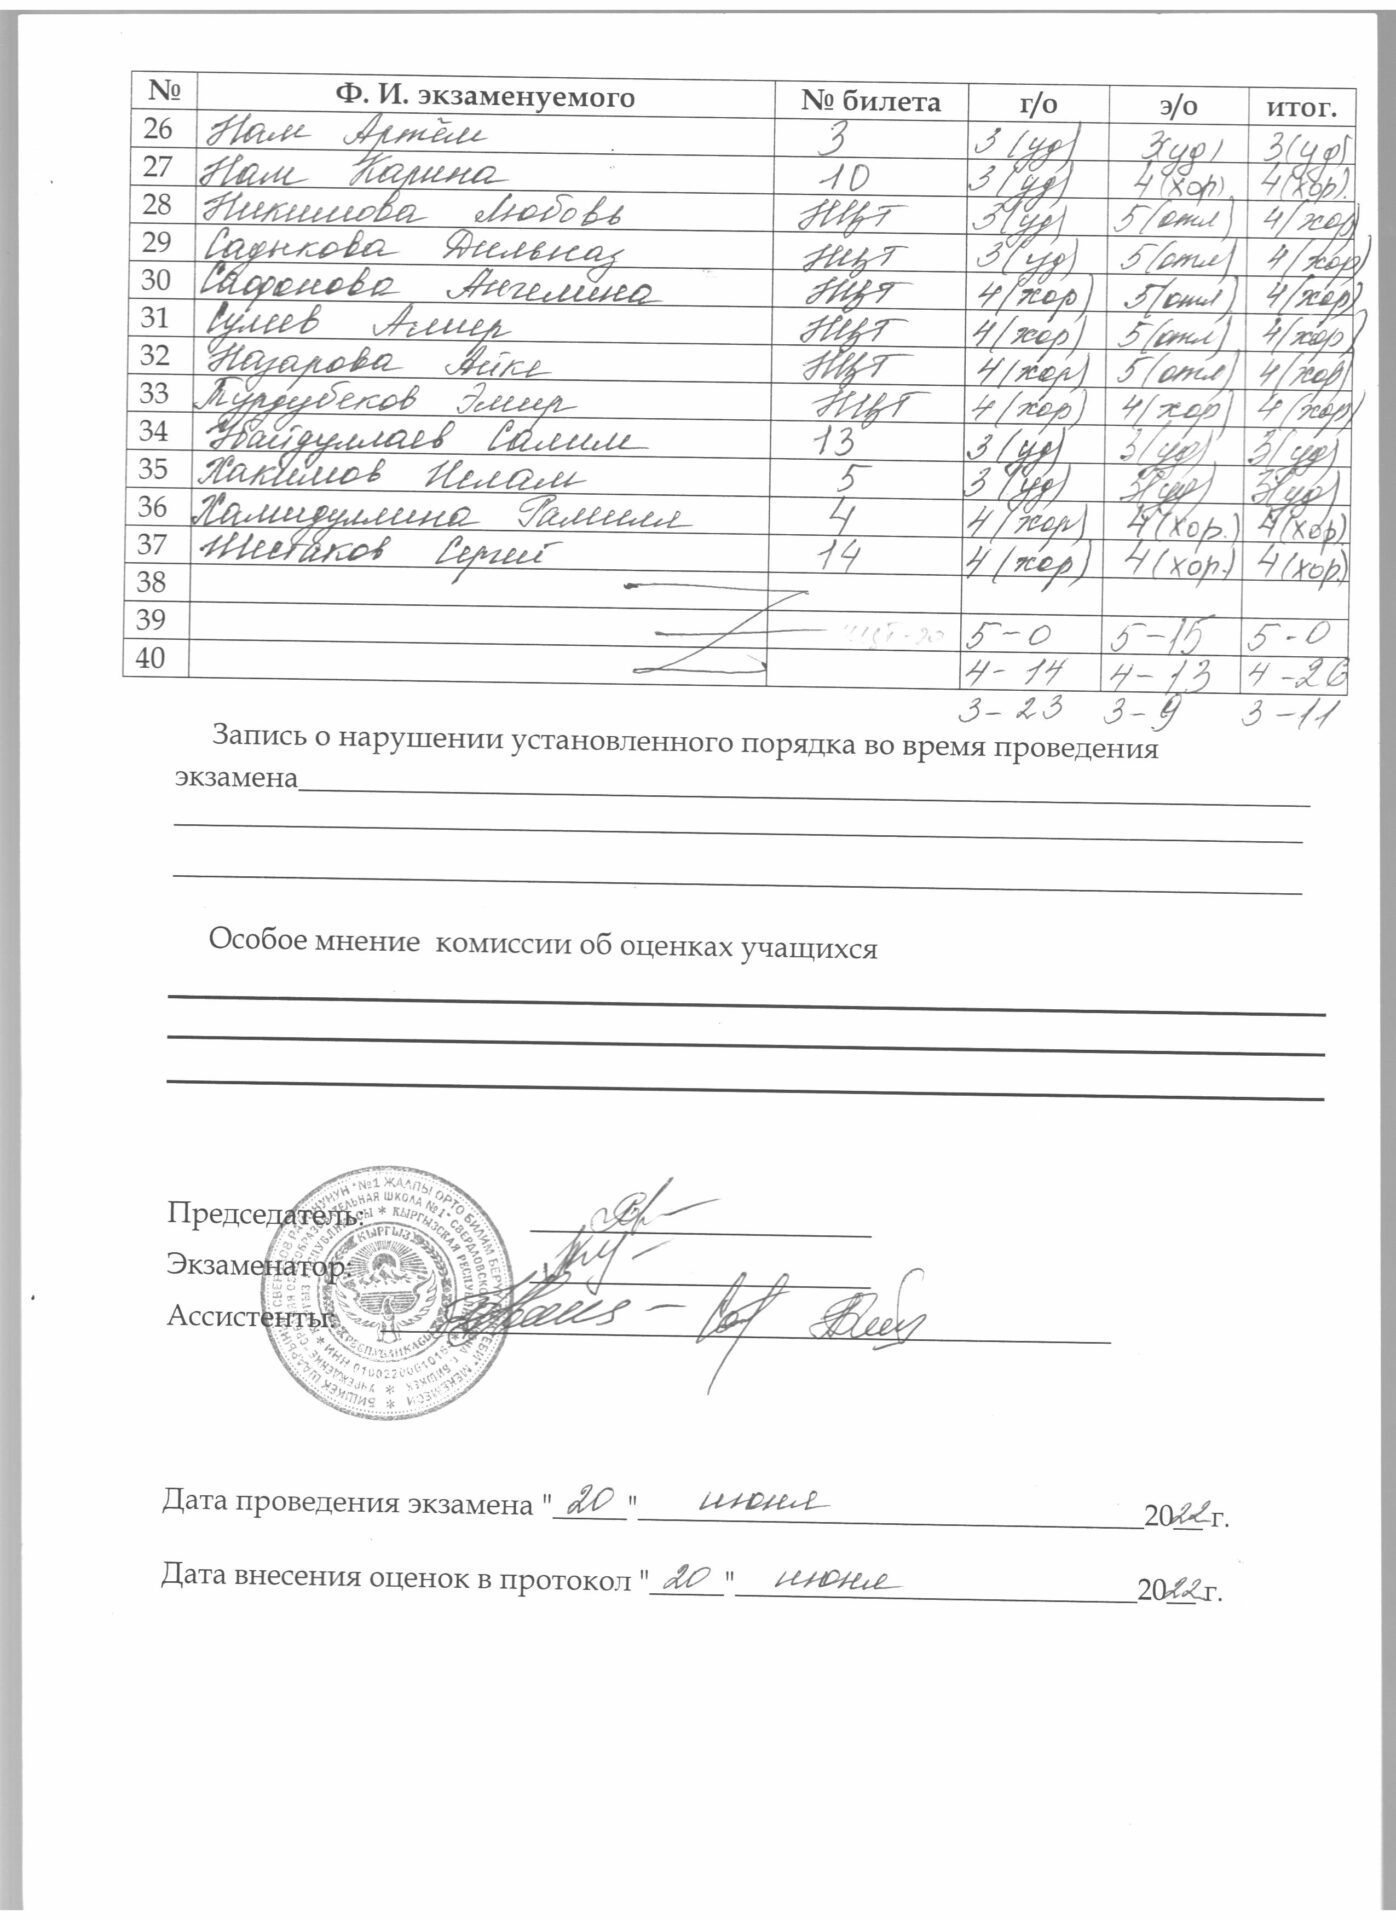 № Ф. И. экзаменуемого № билета г/о э/о итог.
26 Нам Артём 3 3 (уд) 3(уд) 3(уд)
27 Нам Карина 10 3 (уд) 4 (хор) 4(хор).
28 Никишова Любовь НЦТ 3(уд) 5(отл) 4(хор)
29 Садыкова Дильназ НЦТ 3(уд) 5(отл) 4(хор)
30 Сафонова Ангелина НЦТ 4(хор) 5(отл) 4(хор)
31 Сулеев Амир НЦТ 4(хор) 5(отл) 4(хор)
32 Назарова Айке НЦТ 4(хор) 5(отл) 4(хор)
33 Турдубеков Эмир НЦТ 4(хор) 4(хор) 4(хор)
34 Убайдуллаев Салим 13 3(уд) 3(уд) 3(уд)
35 Хакимов Ислам 5 3(уд) 3(уд) 3(уд)
36 Хамидуллина Рамиля 4 4(хор) 4(хор.) 4(хор)
37 Шестаков Сергей 14 4(хор) 4(хор.) 4(хор.)
38
39 НЦТ-20 5-0 5-15 5-0
40 4-14 4-13 4-26
3-23 3-9 3-11
Запись о нарушении установленного порядка во время проведения
экзамена
Особое мнение комиссии об оценках учащихся
Председатель:
Экзаменатор:
Ассистенты:
КЫРГЫЗ
РЕСПУБЛИКАСЫ
Дата проведения экзамена "20" июня 2022 г.
Дата внесения оценок в протокол "20" июня 2022 г.